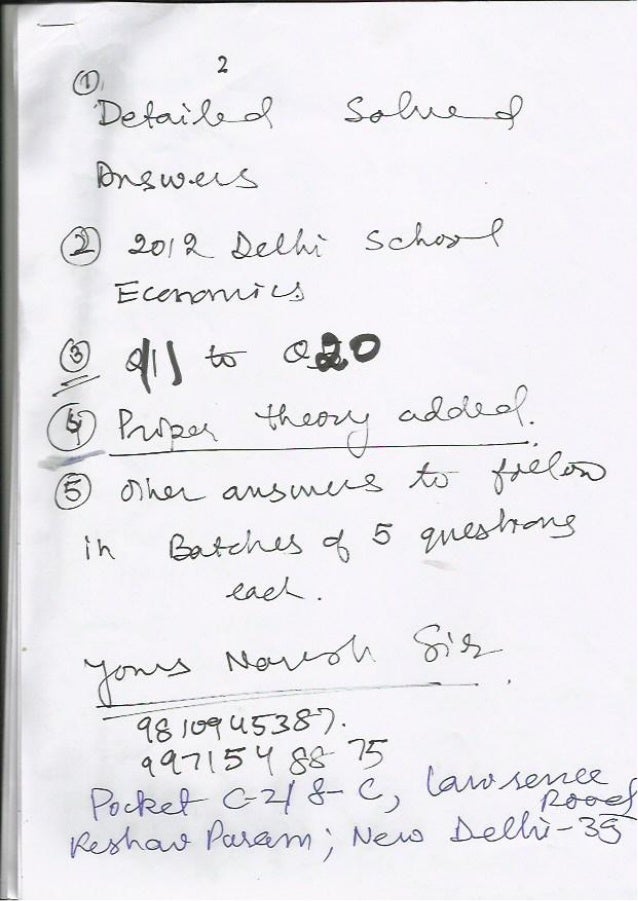 2
① Detailed Solved
Answers
② 2012 Delhi School
Economics.
③ Q11 to Q20
④ Proper theory added.
⑤ Other answers to follow
in Batches of 5 questions
each.
Yours Naresh Sir
9810945387.
9971548875
Pocket C-2/8-C, Lawrence
Road
Keshav Puram; New Delhi-35